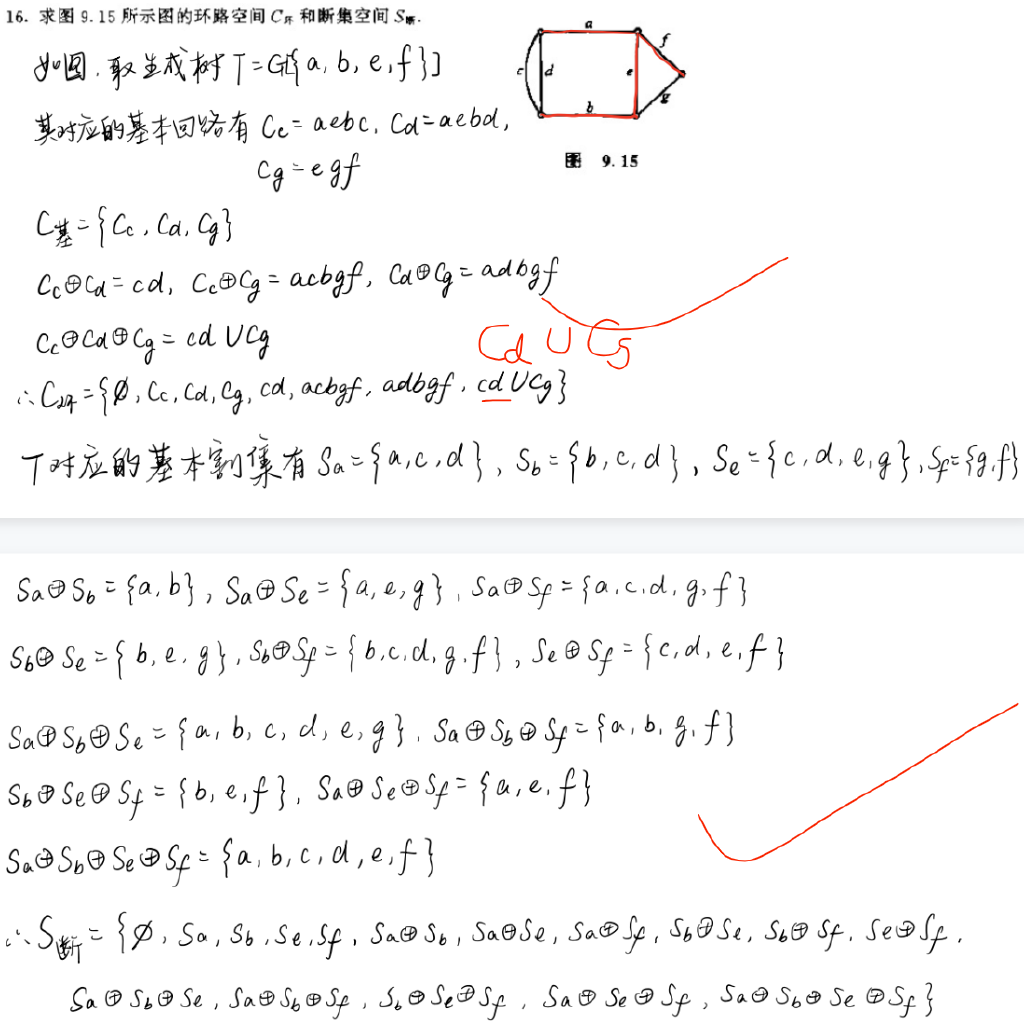 16. 求图 9.15 所示图的环路空间 C环 和断集空间 S断.
a
f
c
d
e
b
g
图 9.15
如图, 取生成树 T=G[{a, b, e, f}]
其对应的基本回路有 Cc = aebc, Cd = aebd,
Cg = egf
C基 = {Cc, Cd, Cg}
Cc⊕Cd = cd, Cc⊕Cg = acbgf, Cd⊕Cg = adbgf
Cc⊕Cd⊕Cg = cd ∪ Cg
Cd ∪ Cg
∴ C环 = {∅, Cc, Cd, Cg, cd, acbgf, adbgf, cd∪Cg}
T对应的基本割集有 Sa = {a, c, d}, Sb = {b, c, d}, Se = {c, d, e, g}, Sf = {g, f}
Sa⊕Sb = {a, b}, Sa⊕Se = {a, e, g}, Sa⊕Sf = {a, c, d, g, f}
Sb⊕Se = {b, e, g}, Sb⊕Sf = {b, c, d, g, f}, Se⊕Sf = {c, d, e, f}
Sa⊕Sb⊕Se = {a, b, c, d, e, g}, Sa⊕Sb⊕Sf = {a, b, g, f}
Sb⊕Se⊕Sf = {b, e, f}, Sa⊕Se⊕Sf = {a, e, f}
Sa⊕Sb⊕Se⊕Sf = {a, b, c, d, e, f}
∴ S断 = {∅, Sa, Sb, Se, Sf, Sa⊕Sb, Sa⊕Se, Sa⊕Sf, Sb⊕Se, Sb⊕Sf, Se⊕Sf,
Sa⊕Sb⊕Se, Sa⊕Sb⊕Sf, Sb⊕Se⊕Sf, Sa⊕Se⊕Sf, Sa⊕Sb⊕Se⊕Sf}